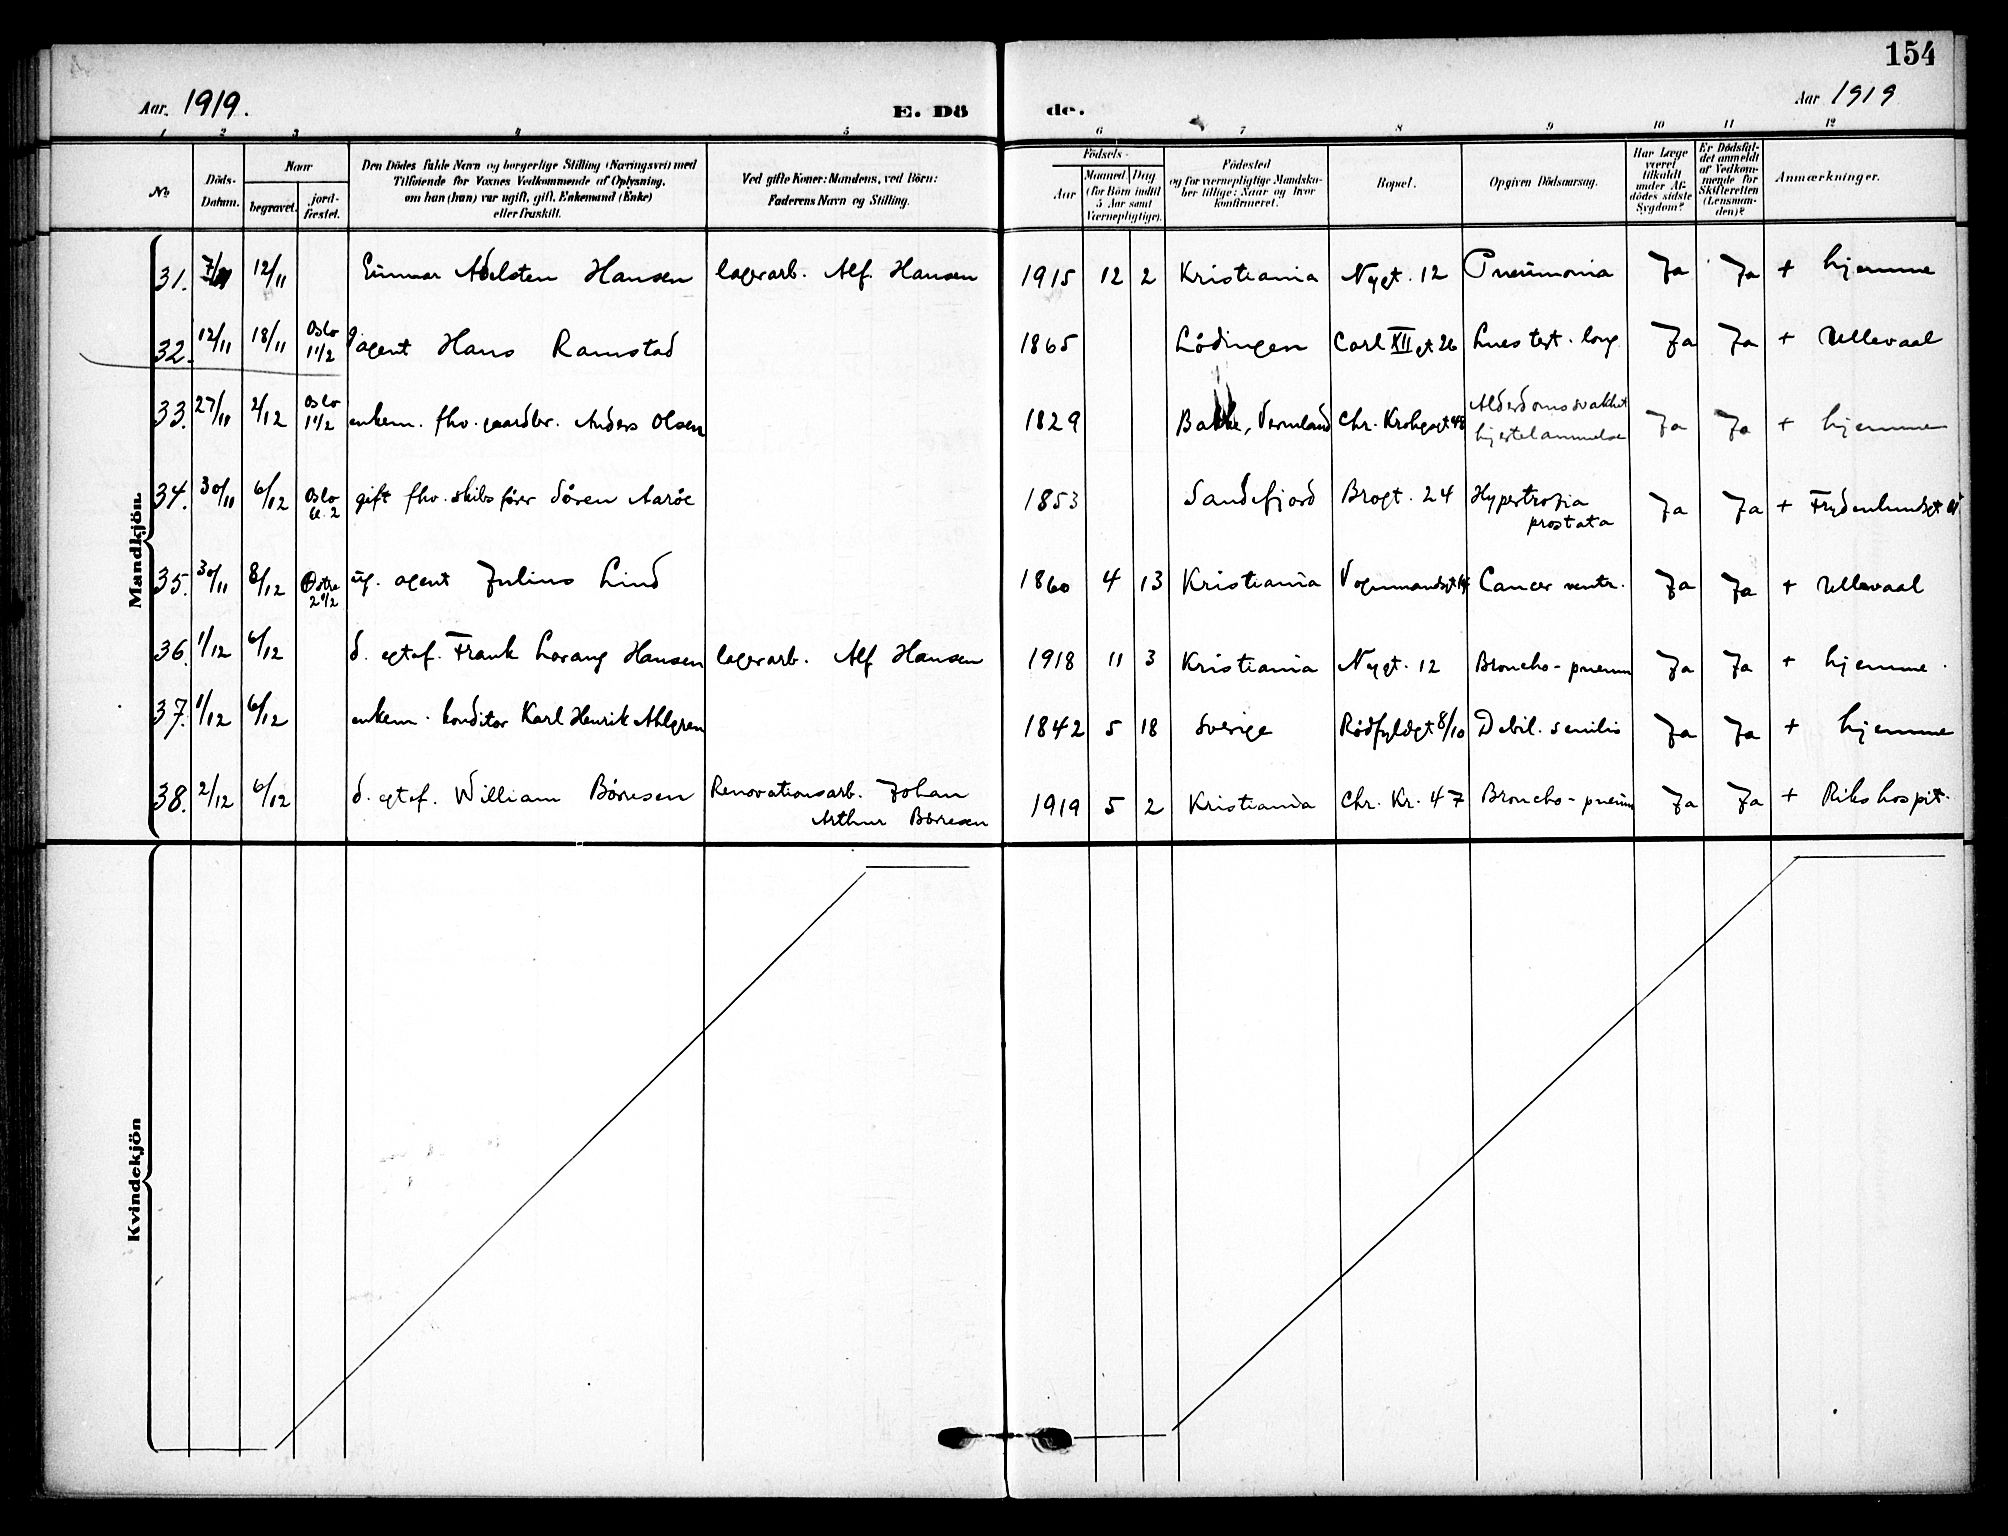 154
Aar. 1919. E. Dö de. Aar 1919
1 2 3 4 5 6 7 8 9 10 11 12
No
Döds-
Datum.
Naar
begravet.
jord-
fæstet.
Den Dödes fulde Navn og borgerlige Stilling (Næringsvei) med
Tilföiende for Voxnes Vedkommende af Oplysning,
om han (hun) var ugift, gift, Enkemand (Enke)
eller fraskilt.
Ved gifte Koner: Mandens, ved Börn:
Faderens Navn og Stilling.
Födsels-
Aar
Maaned Dag
(for Börn indtil
5 Aar samt
Værnepligtige).
Födested
og for værnepligtige Mandska-
ber tillige: Naar og hvor
konfirmeret.
Bopæl.
Opgiven Dödsaarsag.
Har Læge
været
tilkaldt
under Af-
dödes sidste
Sygdom?
Er Dödsfal-
det anmeldt
af Vedkom-
mende for
Skifteretten
(Lensman-
den)?
Anmærkninger.
Mandkjön.
31. 12/11 Hansen lagerarb. Alf. Hansen 1915 12 2 Kristiania Nygt. 12 Pneumonia Ja Ja + hjemme
32. 12/11 18/11 Oslo 11/2 agent Hans Ramstad 1865 Lödingen Carl XII gt 26 Ja Ja + Ullevaal
33. 27/11 2/12 Oslo 11/2 enkem. fhv. gaardbr. Anders Olsen 1829 Bakke, Vermland Chr. Krohgsgt 48 Alderdomssvakhet Ja Ja + hjemme
hjertelammelse
34. 30/11 6/12 Oslo kl. 2 gift fhv. skibsförer Sören Aaröe 1853 Sandefjord Brogt. 24 Hypertrofia Ja Ja + Frydenlundsgt
prostata
35. 30/11 8/12 Östre 2 1/2 ug. agent Julius Lind 1860 4 13 Kristiania Vognmandsgt 14 Cancer ventr. Ja Ja + Ullevaal
36. 1/12 6/12 d. egtef. Frank Lorang Hansen lagerarb. Alf Hansen 1918 11 3 Kristiania Nygt. 12 Broncho-pneum Ja Ja + hjemme.
37. 1/12 6/12 enkem. konditor Karl Henrik Ahlgren 1842 5 18 Sverige Rödfyldgt 8/10 Debil. senilis Ja Ja + hjemme
38. 2/12 6/12 d. egtef. William Börresen Renovationsarb. Johan 1919 5 2 Kristiania Chr. Kr. 47 Broncho-pneum Ja Ja + Rikshospit.
Arthur Börresen
Kvindekjön